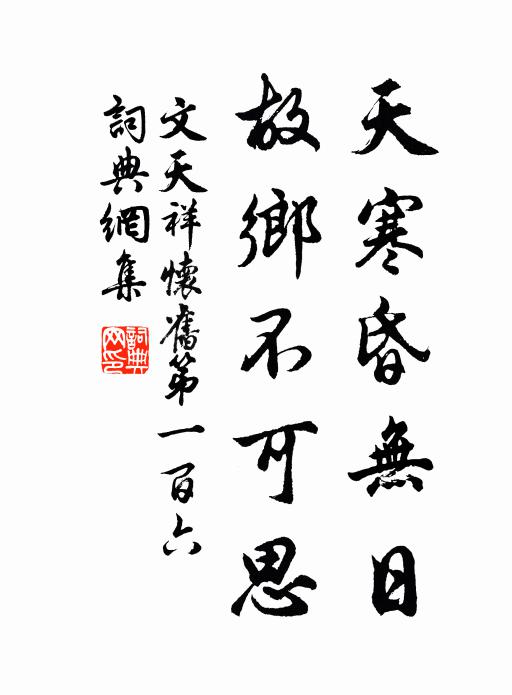 天寒昏無日
故鄉不可思
文天祥懷舊第一百六
詞典網集
詞典網印